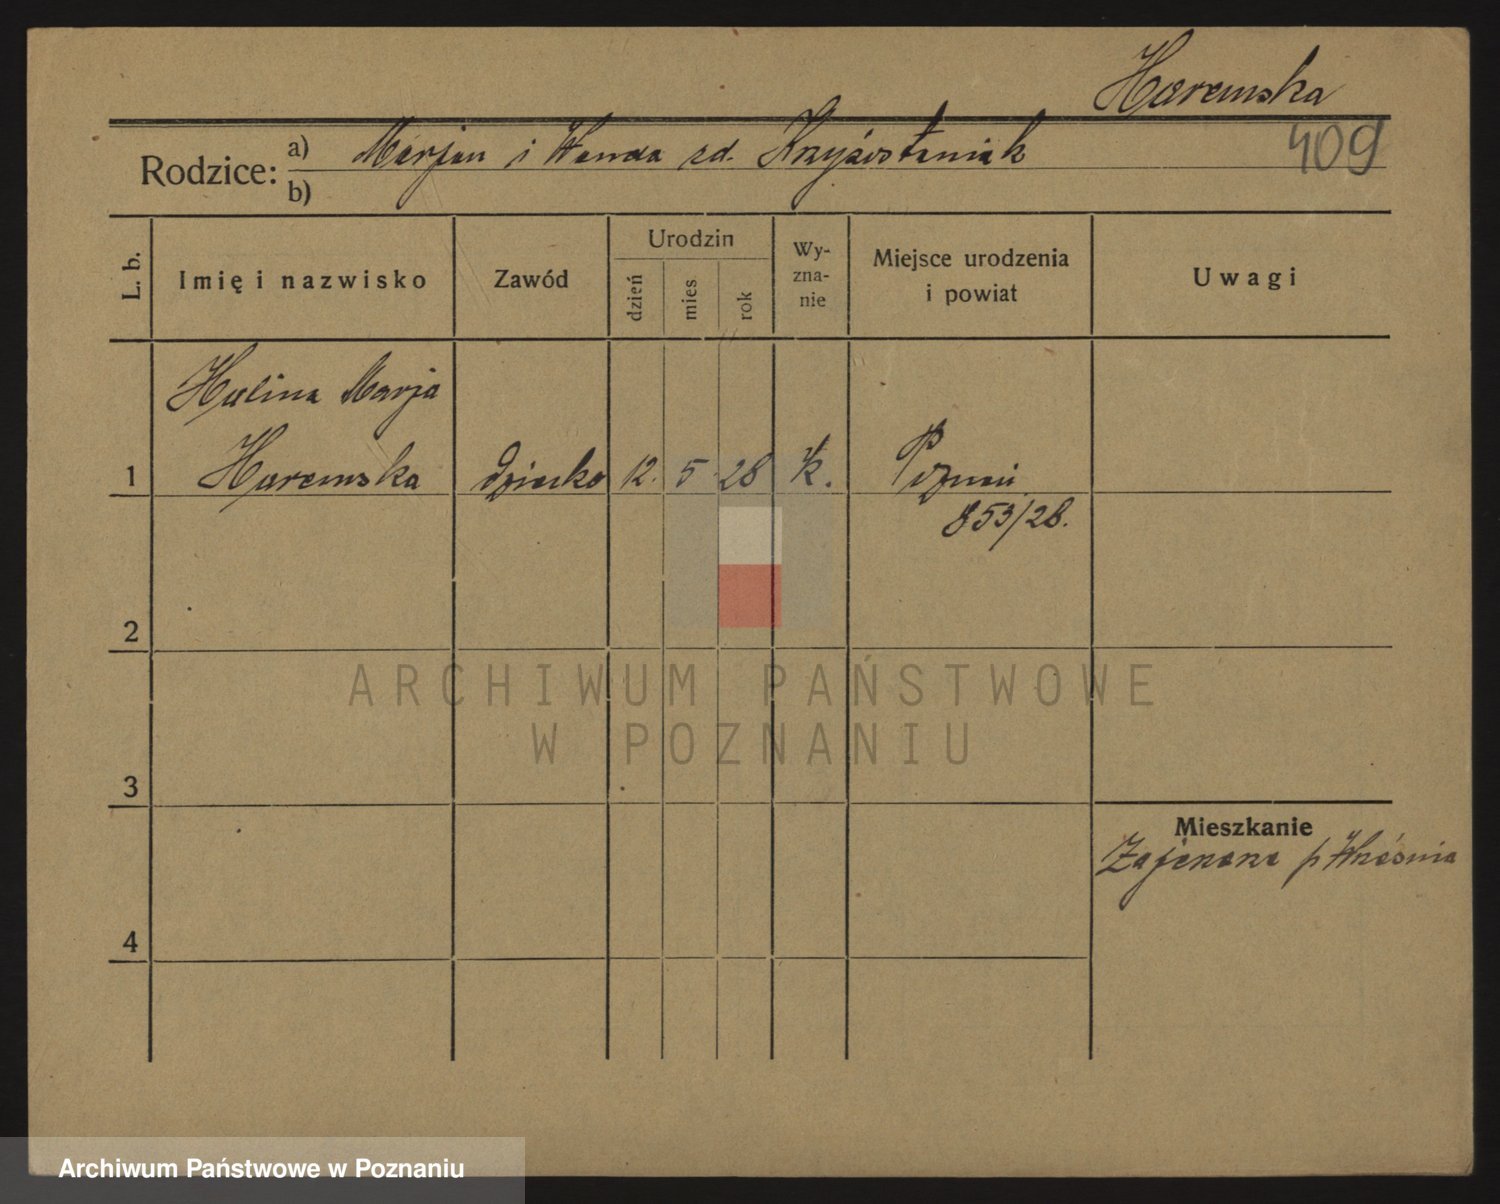 Haremska
409
Rodzice: a) Marjan i Wanda zd. Krzyżostaniak
b)
L. b. Imię i nazwisko Zawód Urodzin dzień mies rok Wy-zna-nie Miejsce urodzenia i powiat Uwagi
Halina Marja
1 Haremska dziecko 12. 5. 28 rk. Poznań
853/28.
2
ARCHIWUM PAŃSTWOWE
W POZNANIU
3
Mieszkanie
p Września
4
Archiwum Państwowe w Poznaniu